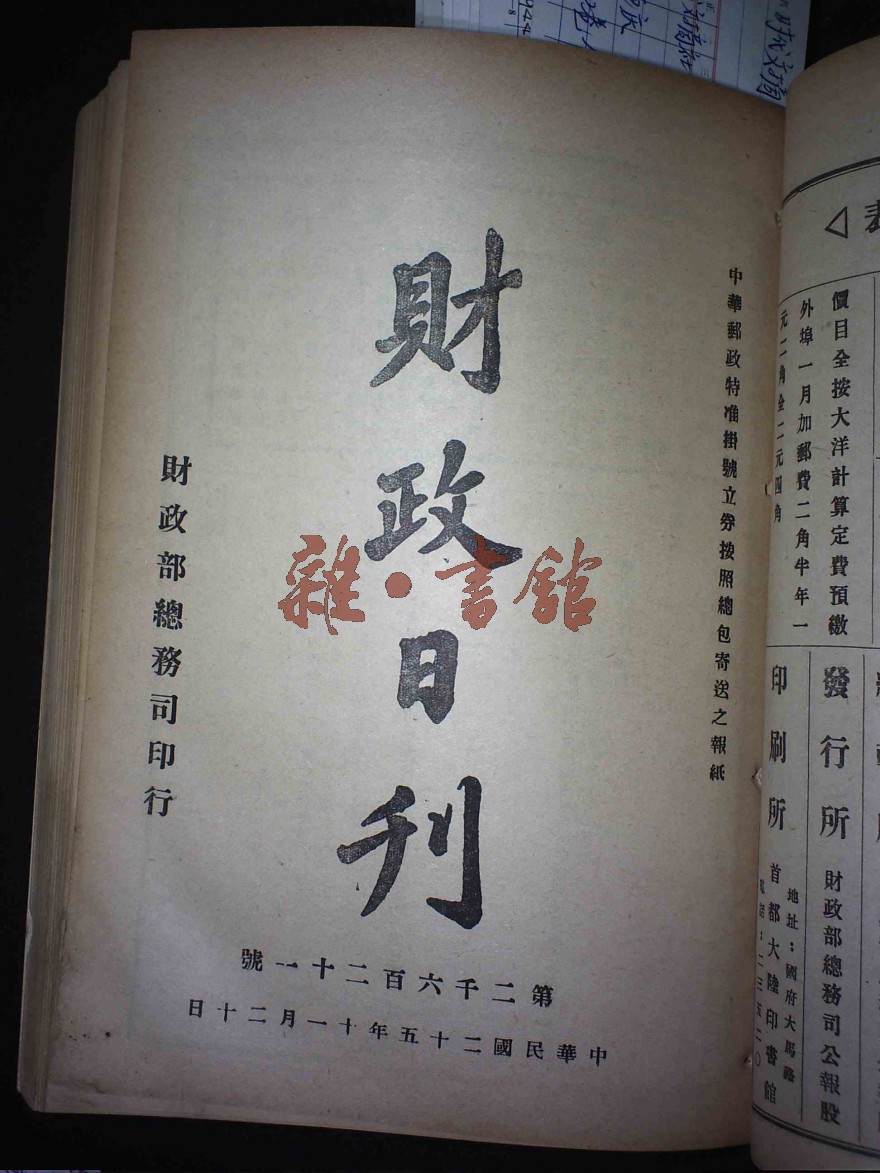 中華郵政特准掛號立劵按照總包寄送之報紙
財政日刊
財政部總務司印行
第二千六百二十一號
中華民國二十五年十一月二十日
雜·書館
價目全按大洋計算定費預繳
外埠一月加郵費二角半年一
元二角全二元四角
發行所 財政部總務司公報股
印刷所 首都大陸印書館
地址：國府大馬路